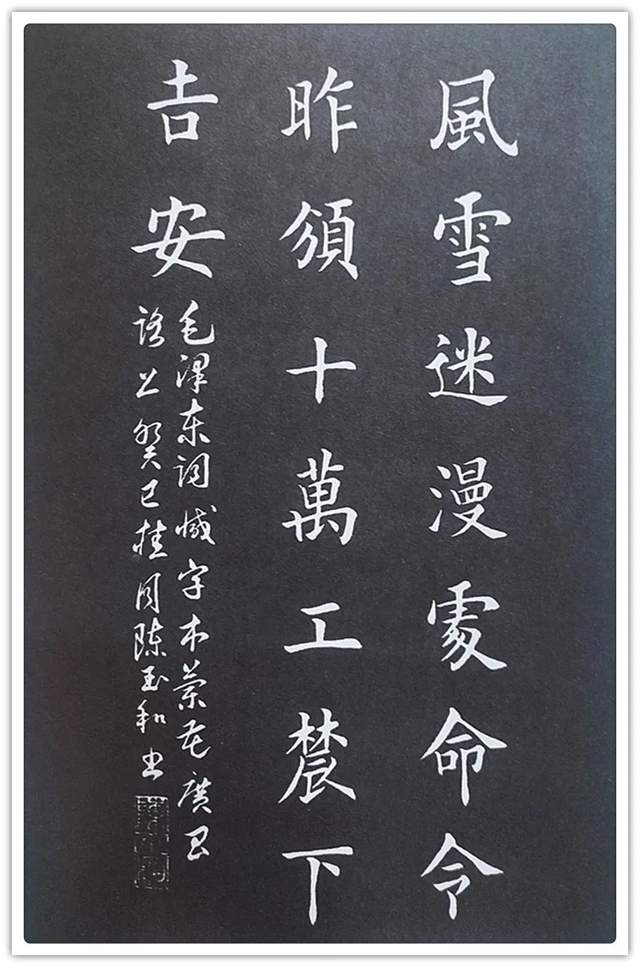 風雪迷漫處命令
昨頒十萬工農下
吉安
毛澤东词減字木蘭花廣昌
路上癸巳桂月陈玉和书